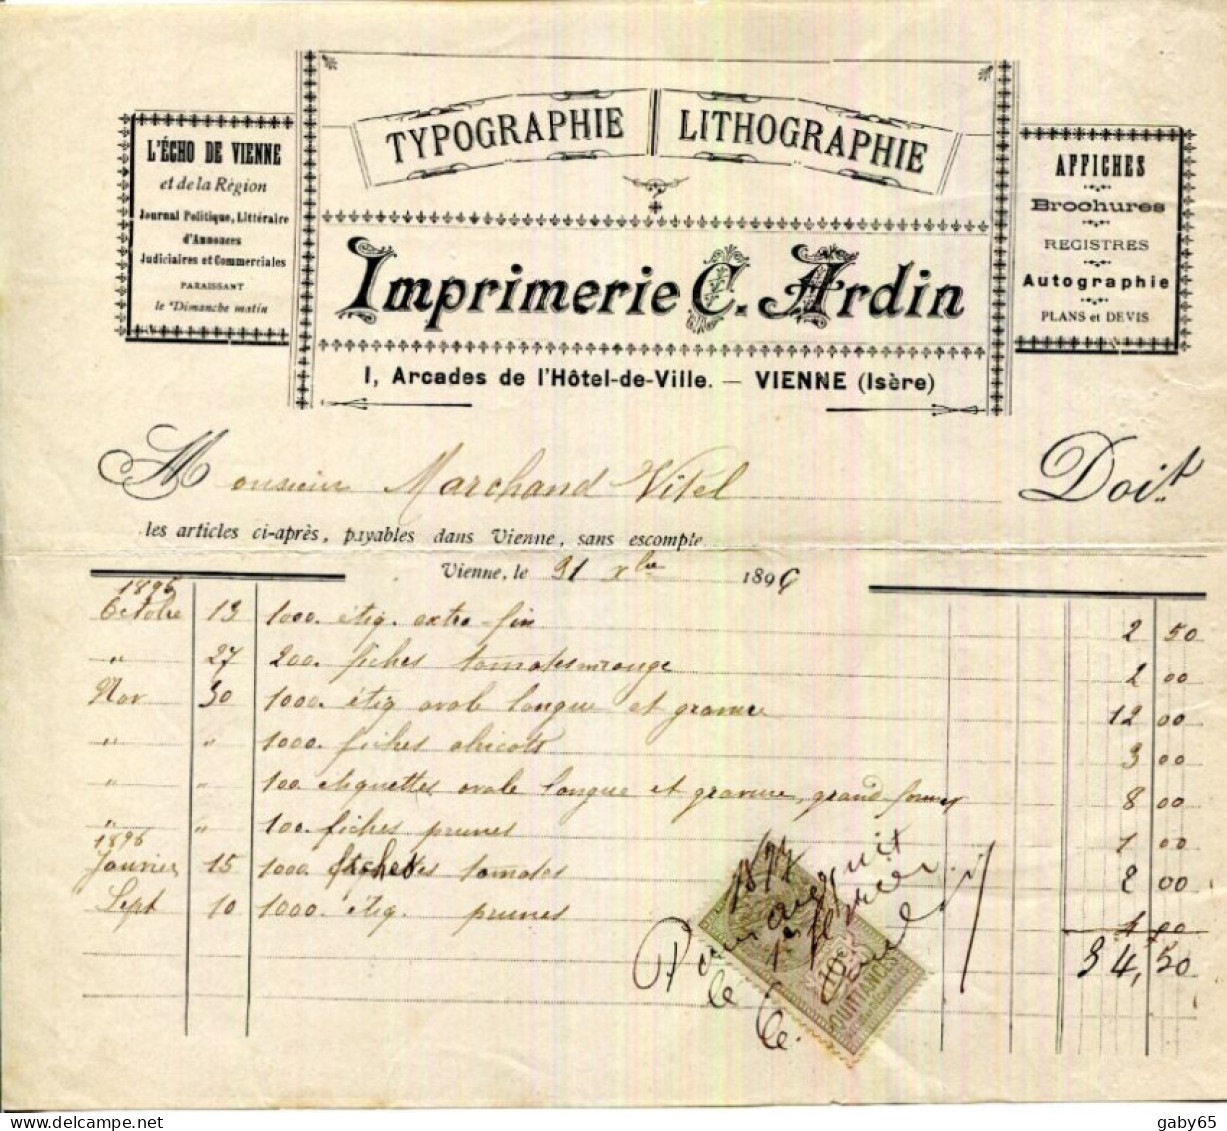 TYPOGRAPHIE LITHOGRAPHIE
L'ÉCHO DE VIENNE
et de la Région
Journal Politique, Littéraire
d'Annonces
Judiciaires et Commerciales
PARAISSANT
le Dimanche matin
Imprimerie C. Ardin
1, Arcades de l'Hôtel-de-Ville. — VIENNE (Isère)
AFFICHES
Brochures
REGISTRES
Autographie
PLANS et DEVIS
Monsieur Marchand Vitel Doit
les articles ci-après, payables dans Vienne, sans escompte
Vienne, le 31 xbre 1896
1895
Octobre 13 1000. étiq. extra-fin 2 50
" 27 200. fiches tomates en rouge 2 00
Nov 30 1000. étiq ovale longue et gravure 12 00
" " 1000. fiches abricots 3 00
" " 100 etiquettes ovale longue et gravure, grand format 8 00
" " 100. fiches prunes 1 00
1896
Janvier 15 1000 fiches tomates 2 00
Sept 10 1000. étiq. prunes 4 00
34,50
Pour acquit
le 1er
1897
10c
QUITTANCES
gaby65